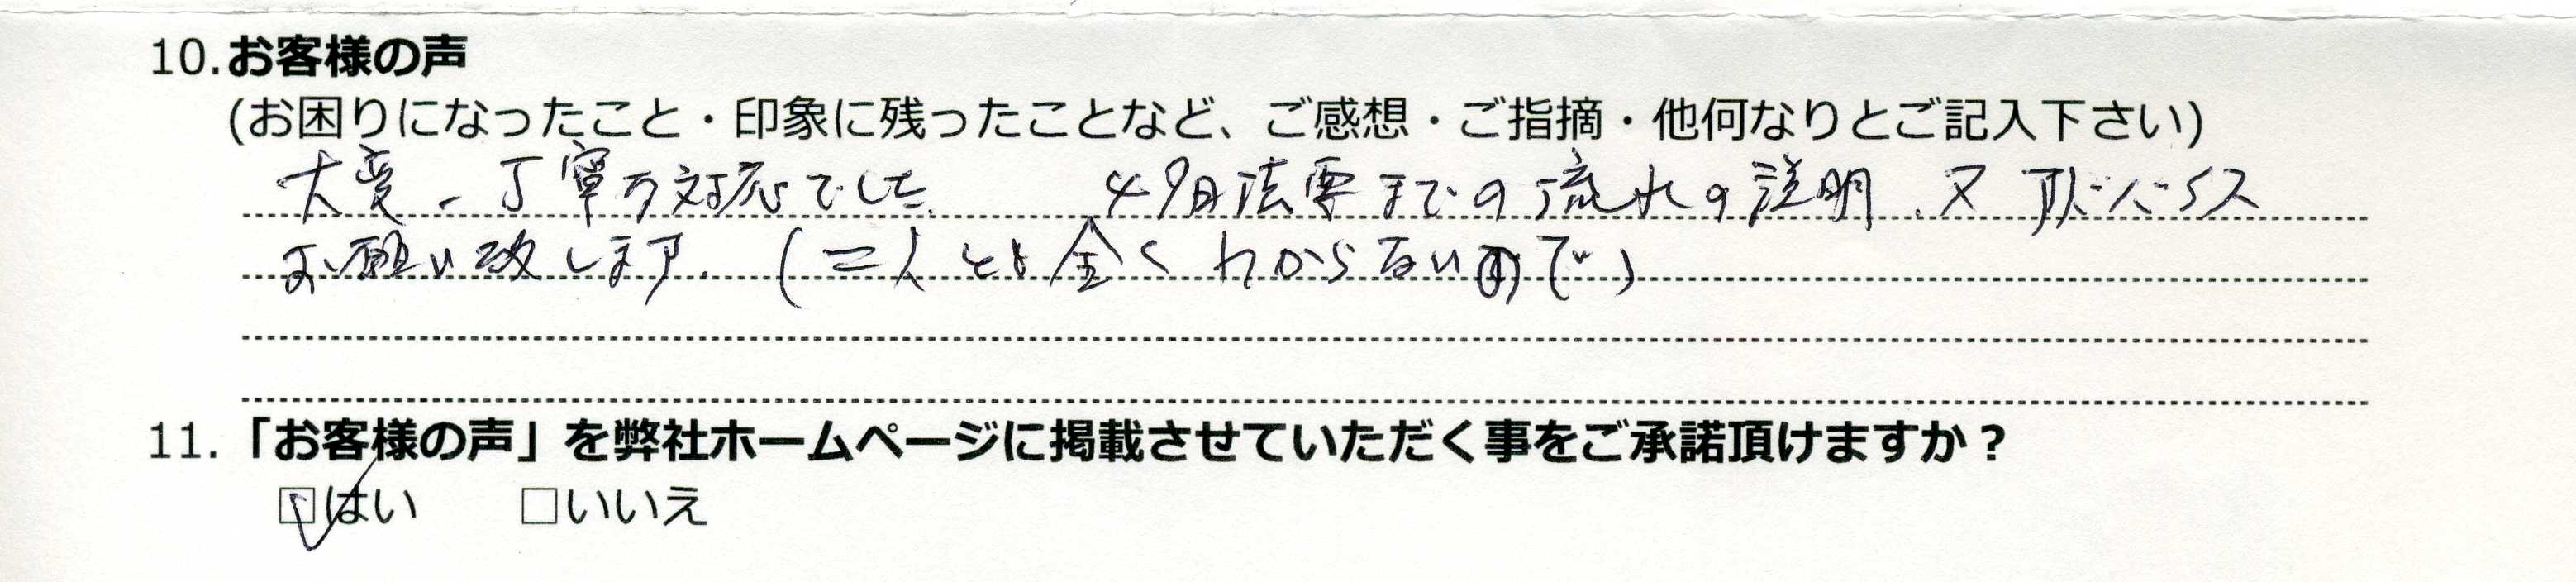 10.お客様の声
(お困りになったこと・印象に残ったことなど、ご感想・ご指摘・他何なりとご記入下さい)
大変、丁寧な対応でした 49日法要までの流れの説明、又アドバイス
お願い致します。(二人とも全くわからないので)
11.「お客様の声」を弊社ホームページに掲載させていただく事をご承諾頂けますか？
☑はい □いいえ